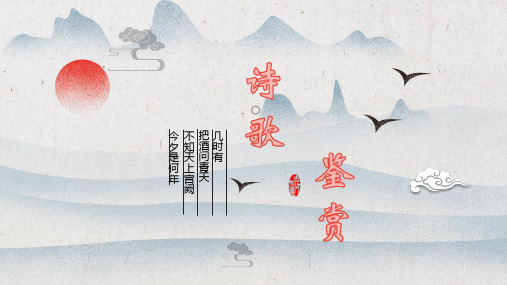 诗歌
鉴赏
几时有
把酒问青天
不知天上宫阙
今夕是何年